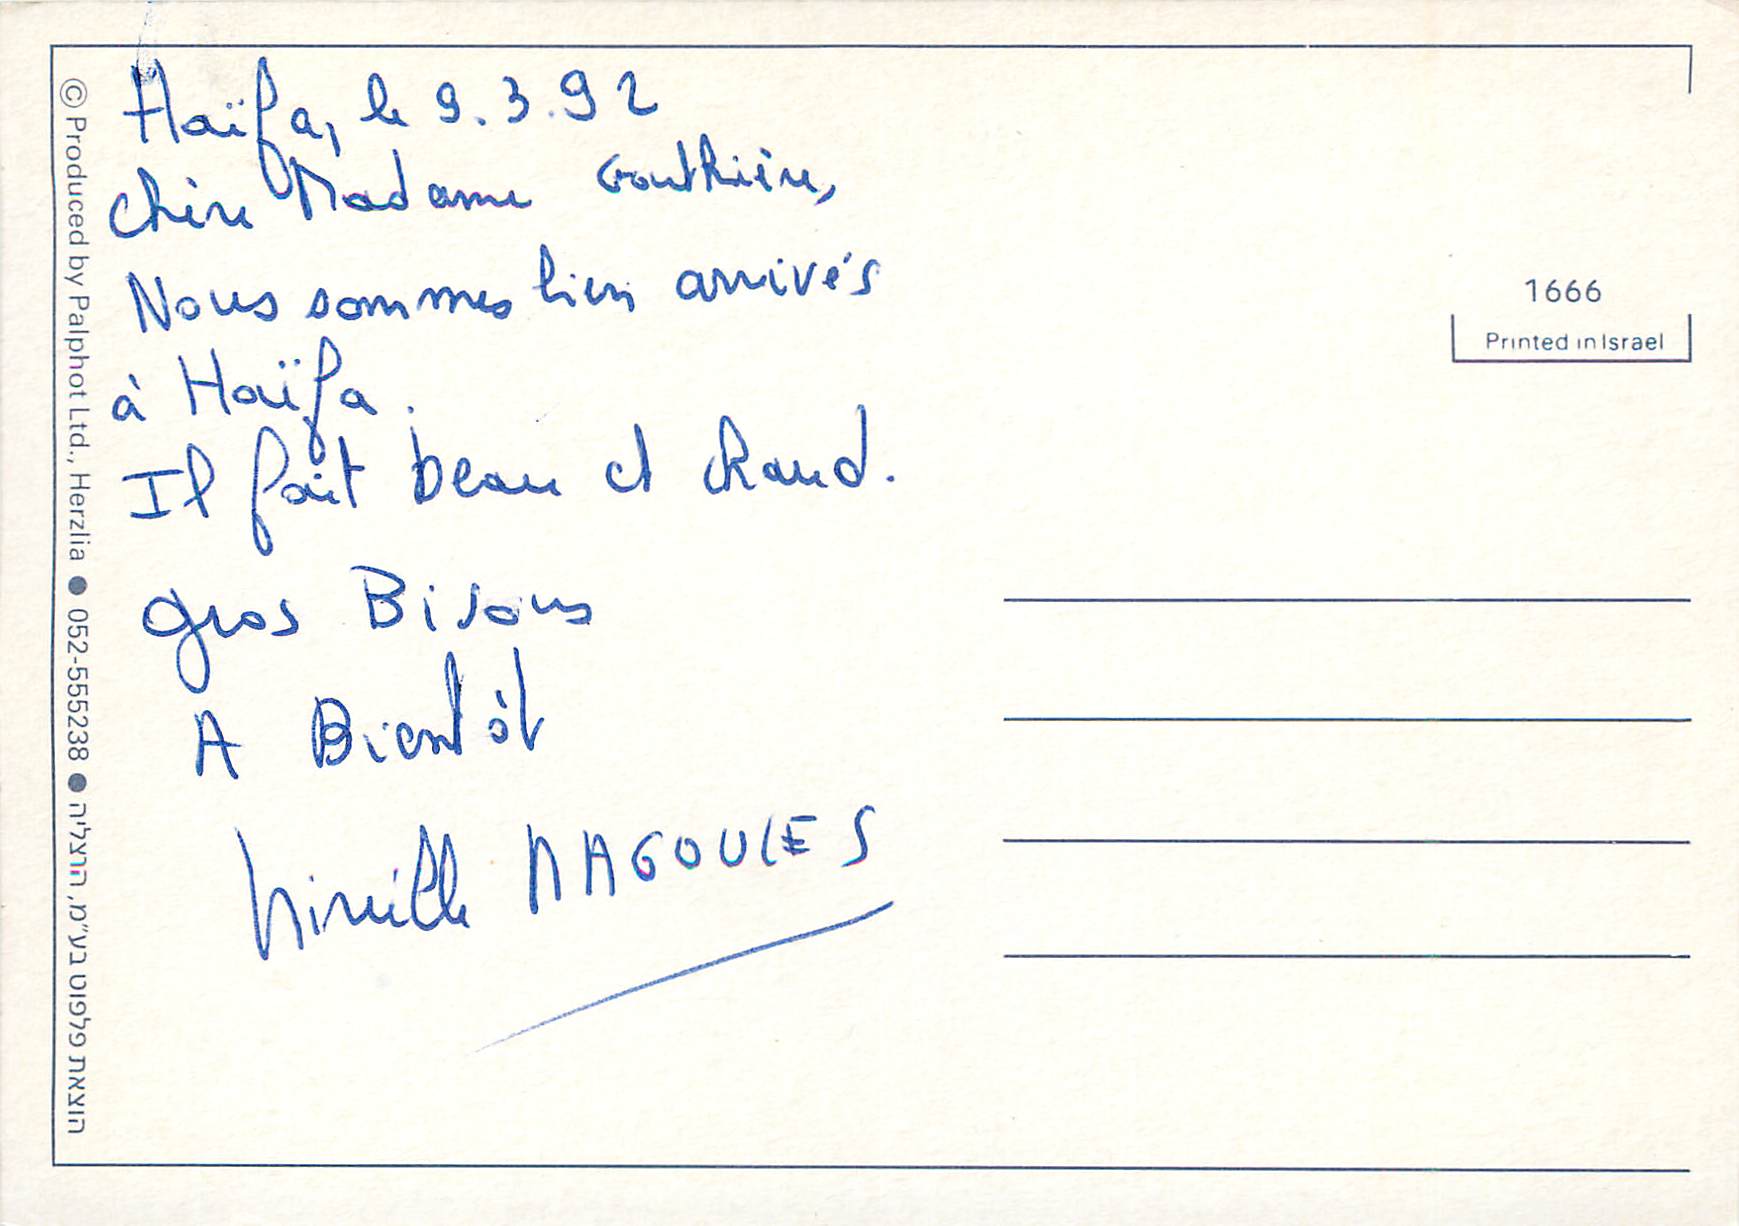 Haïfa, le 9.3.92
Chère Madame Gouthière,
Nous sommes bien arrivés
à Haïfa.
Il fait beau et chaud.
gros Bisous
A Bientôt
Mireille MAGOULES
© Produced by Palphot Ltd., Herzlia ● 052-555238 ● הוצאת פלפוט בע״מ, הרצליה
1666
Printed in Israel